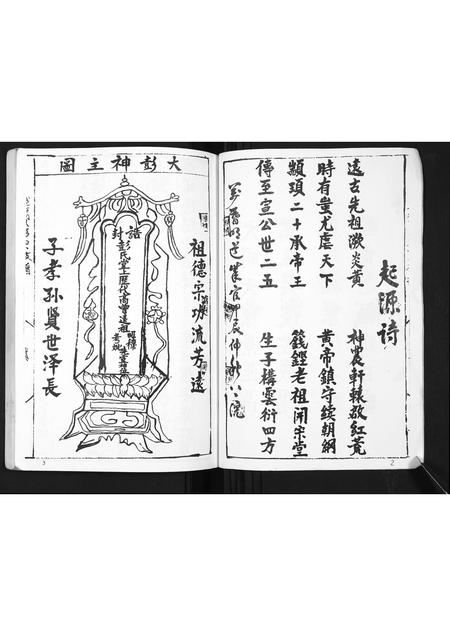 起源诗
遠古先祖溯炎黄 神農軒轅啟紅荒
時有蚩尤虐天下 黄帝鎮守续朝綱
顓頊二十承帝王 籛鏗老祖開宗堂
傳至宣公世二五 生子構雲衍四方
2
大彭神主圖
祖德宗功流芳遠
誥封
彭氏堂上歷代高曾遠祖
昭穆
子孝孫賢世泽長
3